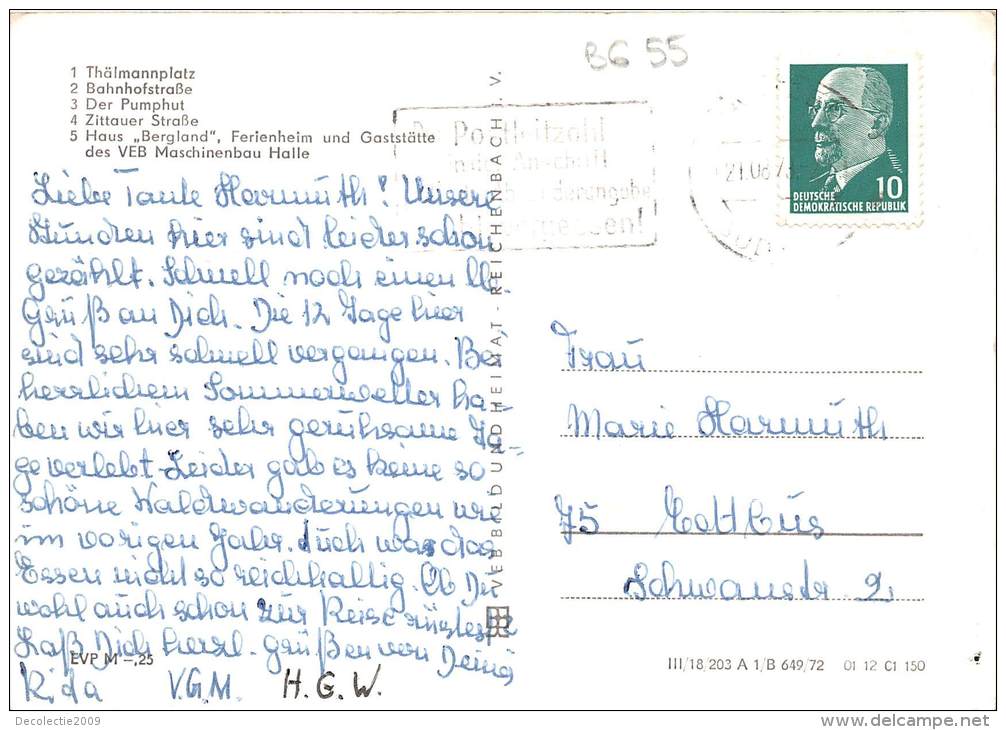 BG 55
1 Thälmannplatz
2 Bahnhofstraße
3 Der Pumphut
4 Zittauer Straße
5 Haus „Bergland“, Ferienheim und Gaststätte
des VEB Maschinenbau Halle
Postleitzahl
in der Anschrift
21.08.73
10
DEUTSCHE
DEMOKRATISCHE REPUBLIK
Liebe Tante Harmuth! Unsere
Stunden hier sind leider schon
gezählt. Schnell noch einen lb.
Gruß an Dich. Die 12 Tage hier
sind sehr schnell vergangen. Bei
herrlichem Sommerwetter ha-
ben wir hier sehr geruhsame Ta-
ge verlebt. Leider gab es keine so
schöne Waldwanderungen wie
im vorigen Jahr. Auch war das
Essen nicht so reichhaltig. Ob Du
wohl auch schon zur Reise rüstest?
Laß Dich herzl. grüßen von Deine
Rida V.G.M. H.G.W.
VEB BILD UND HEIMAT - REICHENBACH I. V.
EVP M -,25
Frau
Marie Harmuth
75 Cottbus
Schwanstr 2
III/18/203 A 1/B 649/72 01 12 01 150
Decolectie2009
www.delcampe.net